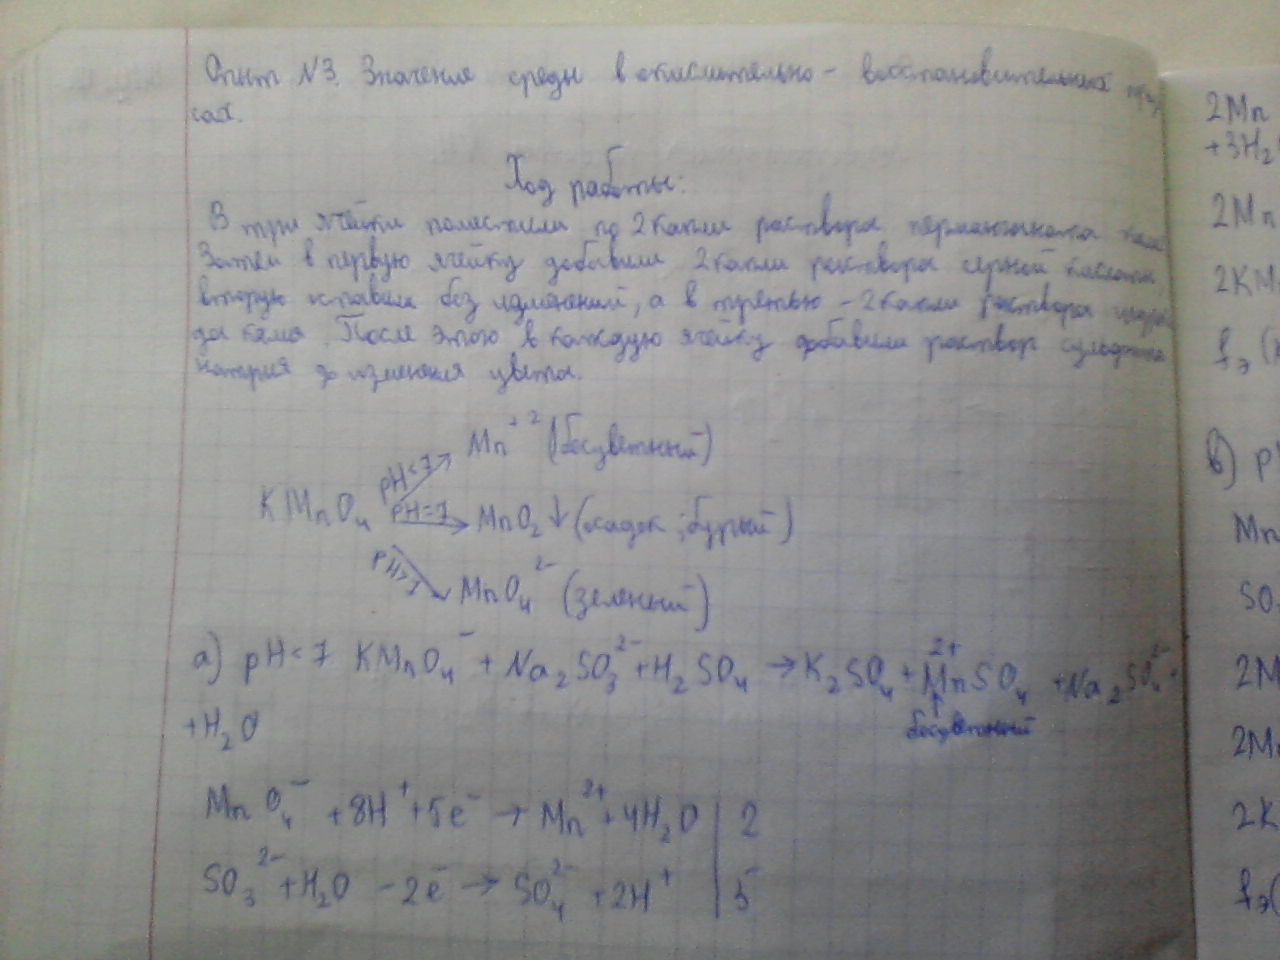 Опыт N3. Значение среды в окислительно-восстановительных
сах.
Ход работы:
В три ячейки поместили по 2 капли раствора перманганата
Затем в первую ячейку добавили 2 капли раствора серной кислоты,
вторую оставили без изменений, а в третью - 2 капли раствора
да калия. После этого в каждую ячейку добавили раствор сульфита
натрия до изменения цвета.
Mn⁺² (бесцветный)
pH<7
KMnO₄ pH=7 MnO₂↓ (осадок; бурый)
pH>7
MnO₄²⁻ (зеленый)
а) pH<7 KMnO₄⁻ + Na₂SO₃²⁻ + H₂SO₄ → K₂SO₄ + Mn²⁺SO₄ + Na₂SO₄²⁻ +
+H₂O
бесцветный
MnO₄⁻ + 8H⁺ + 5e⁻ → Mn²⁺ + 4H₂O | 2
SO₃²⁻ + H₂O - 2e⁻ → SO₄²⁻ + 2H⁺ | 5
2Mn
+3H₂
2Mn
2KM
fэ(
в) p
Mn
SO
2M
2M
2K
fэ(